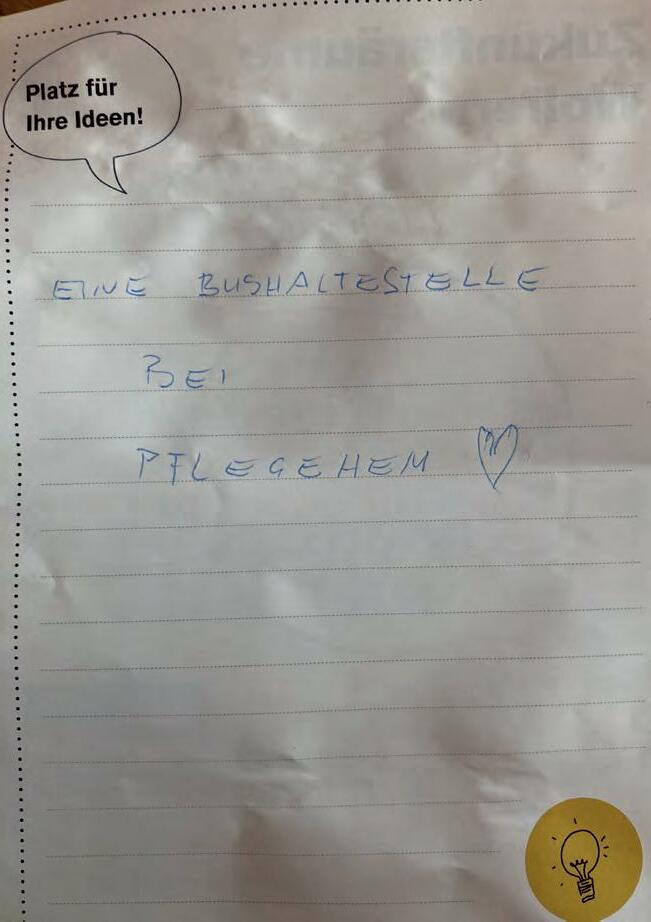 Platz für
Ihre Ideen!
EINE BUSHALTESTELLE
BEI
PFLEGEHEM